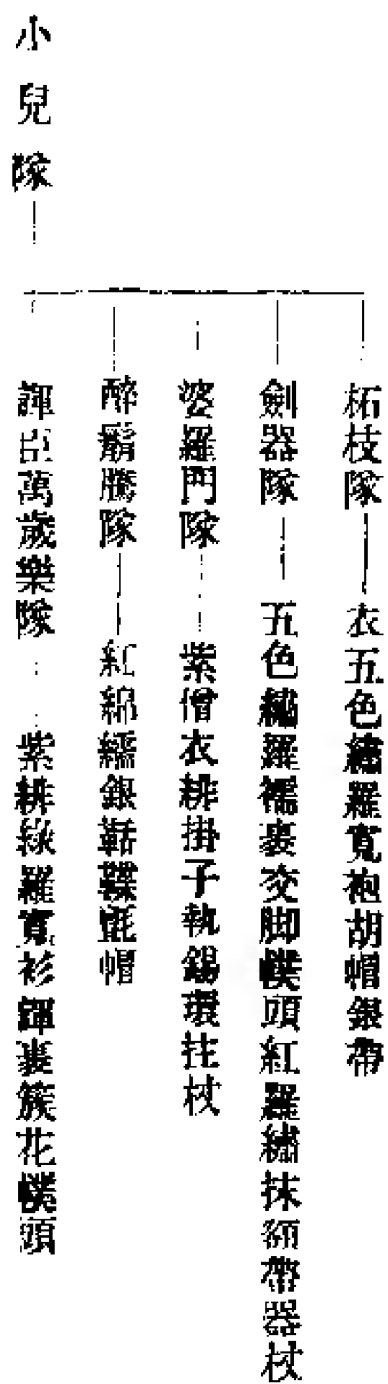 小兒隊
柘枝隊——衣五色繡羅寬袍胡帽銀帶
劍器隊——五色繡羅襦裹交脚幞頭紅羅繡抹額帶器杖
婆羅門隊……紫僧衣緋掛子執錫環拄杖
醉鬍騰隊——紅綿繻銀鞊鞢氈帽
諢臣萬歲樂隊……紫緋綠羅寬衫諢裹簇花幞頭